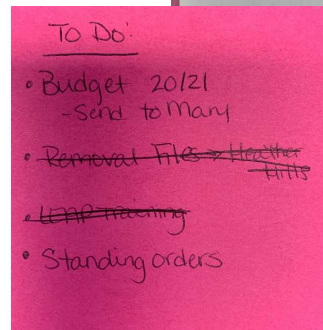 To Do:
• Budget 20/21
- Send to Mary
• Removal Files → Heather
Hills
• Training
• Standing orders